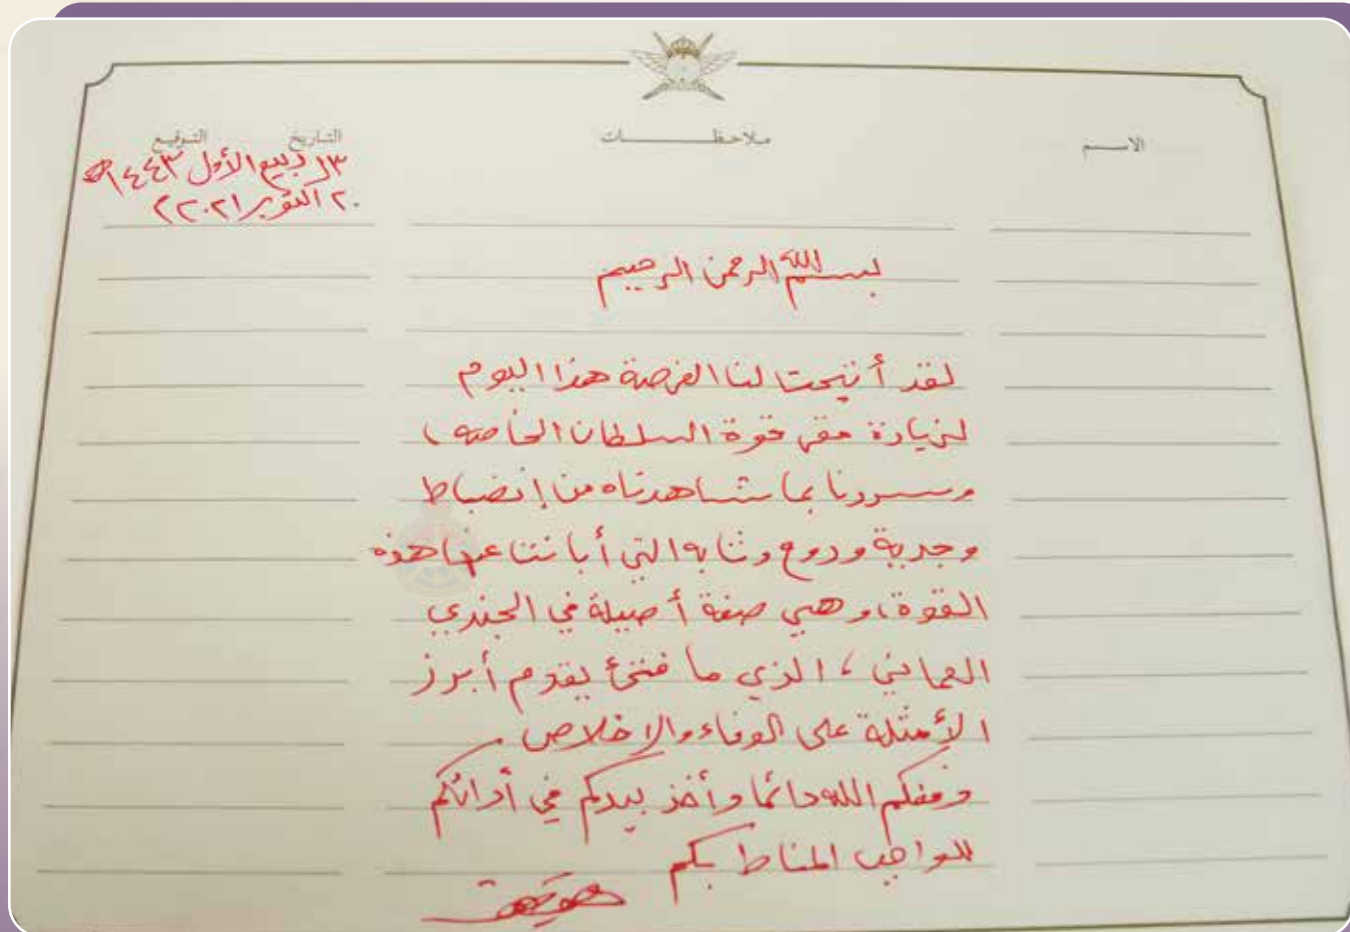 الاسم ملاحظات التاريخ التوقيع
١٣ ربيع الأول ١٤٤٣هـ
٢٠ أكتوبر ٢٠٢١
بسم الله الرحمن الرحيم
لقد أتيحت لنا الفرصة هذا اليوم
لزيارة مقر قوة السلطان الخاصة،
وسررنا بما شاهدناه من إنضباط
وجدية وروح وثابه التي أبانتا عنها هذه
القوة، وهي صفة أصيلة في الجندي
العماني، الذي ما فتئ يقدم أبرز
الأمثلة على الوفاء والإخلاص.
وفقكم الله دائما وأخذ بيدكم في أدائكم
للواجب المناط بكم